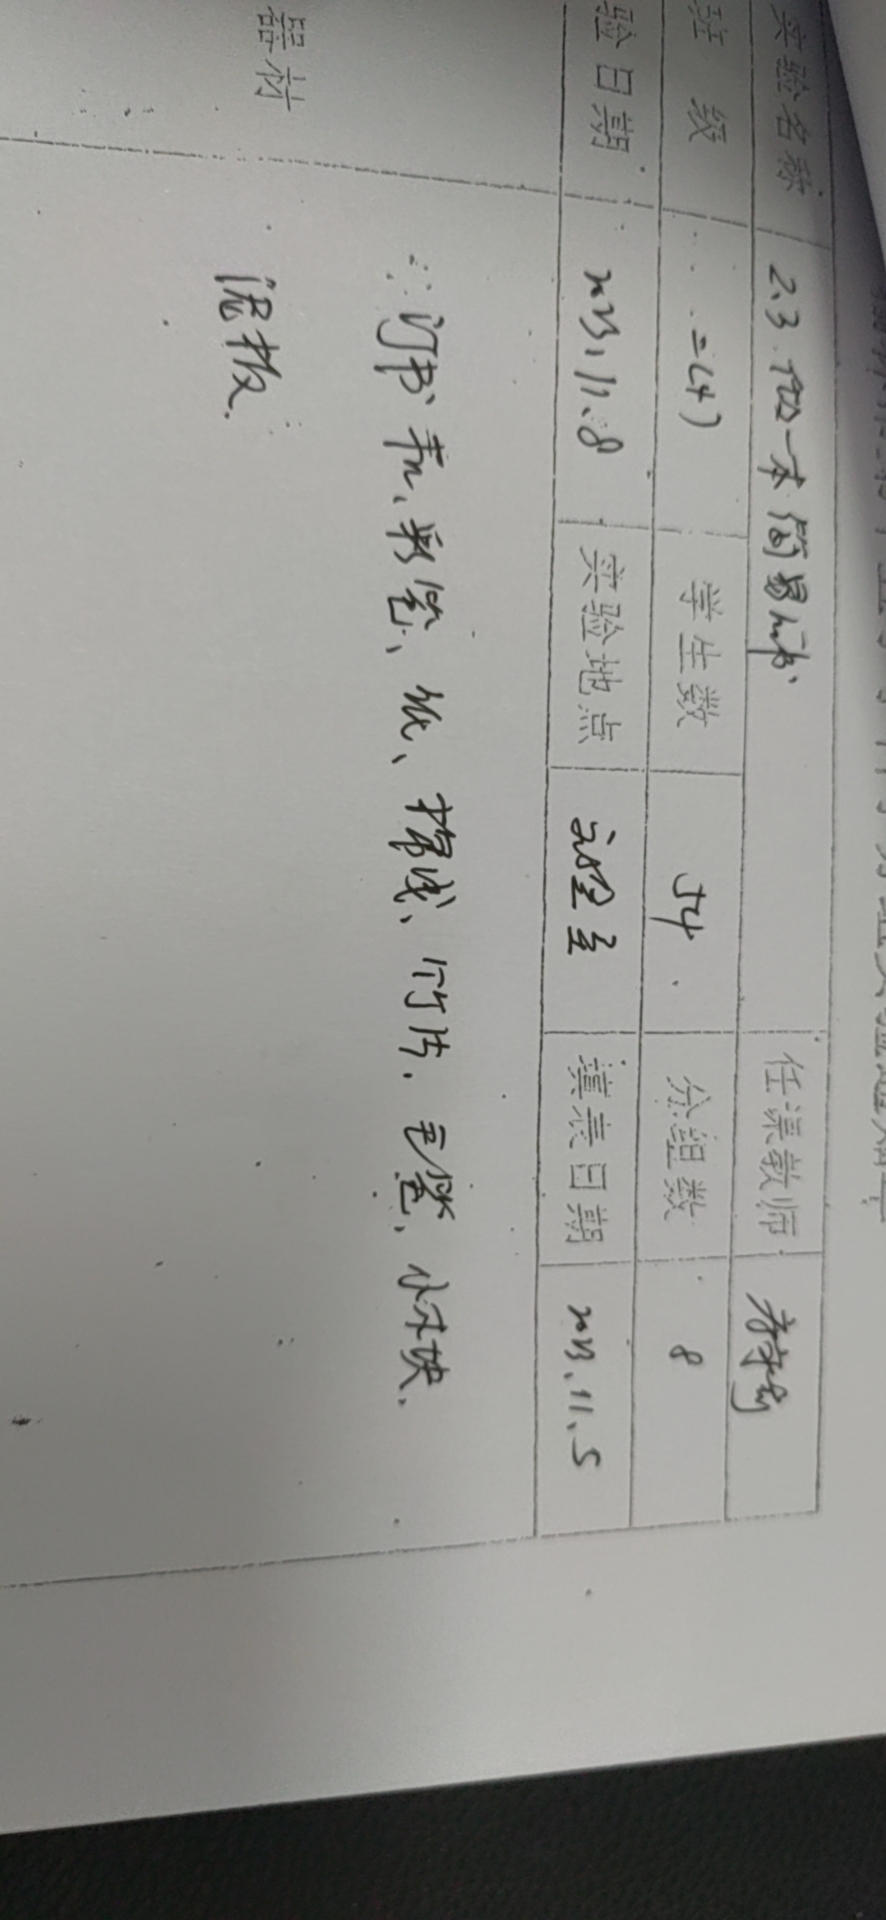 实验名称 2.3.做一本简易小书 任课教师
班 级 二(4) 学生数 54. 分组数 8
验日期 2023.11.8 实验地点 实验室 填表日期 2023.11.5
器材 订书机、彩笔、纸、棉线、竹片、毛笔、小木块、
泥板.